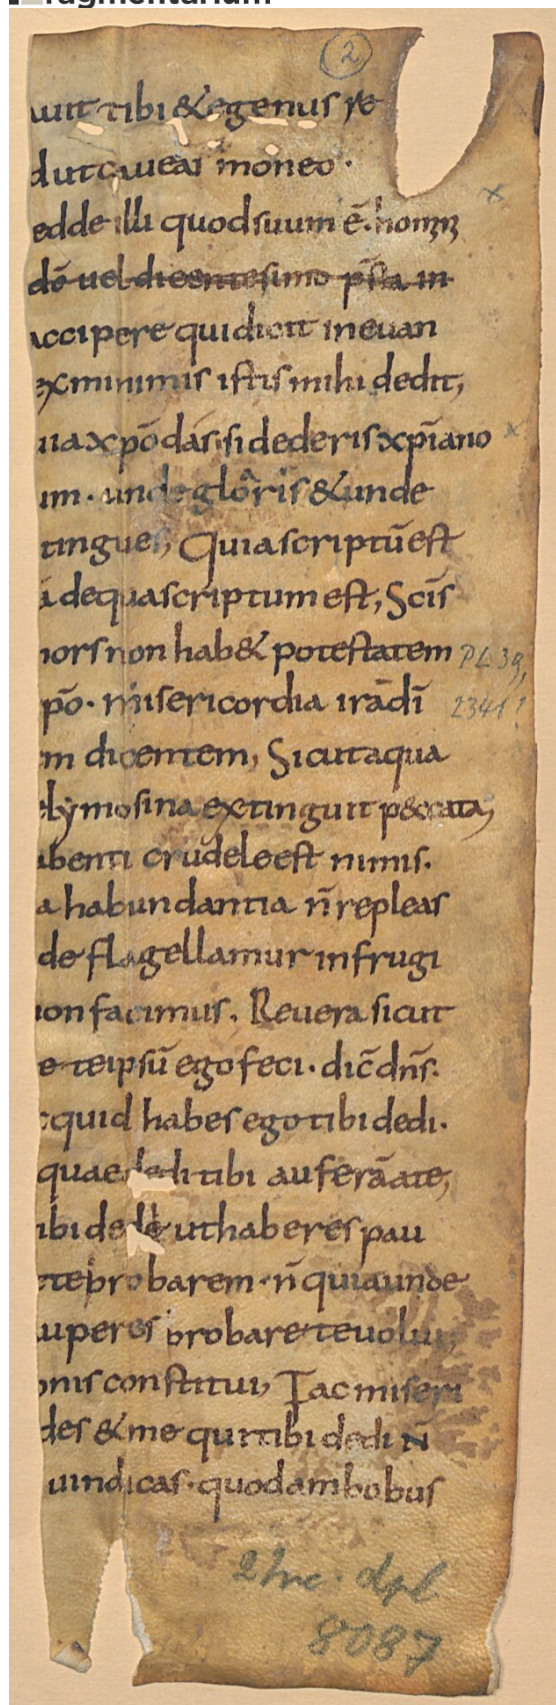 fragmentarium
2
uit tibi & egenus re
d ut caueas moneo.
edde illi quod suum ē. homini
dō uel dicentesimo p̄sta in
accipere qui dicit in euan
ex minimis istis mihi dedit;
uia xpō das. si dederis xp̄iano
um. unde glōris & unde
tingues; Quia scriptū est
ā de qua scriptum est; Scis
mors non hab& potestatem
PL 39,
2341!
pō. misericordia irā dī
m dicentem; Sicut aqua
elymosina extinguit peccata;
abenti crudele est nimis.
a habundantia n̄ repleas
de flagellamur in frugi
non facimus. Revera sicut
e te ipsū ego feci. dic̄ dn̄s.
cquid habes ego tibi dedi.
quae dedi tibi auferā a te;
ibi dedi ut haberes pau
te probarem. n̄ quia unde
uperes probare te uolui;
onis constitui; Fac miseri
des & me qui tibi dedi N̄
uindicas. quod ambobus
8087